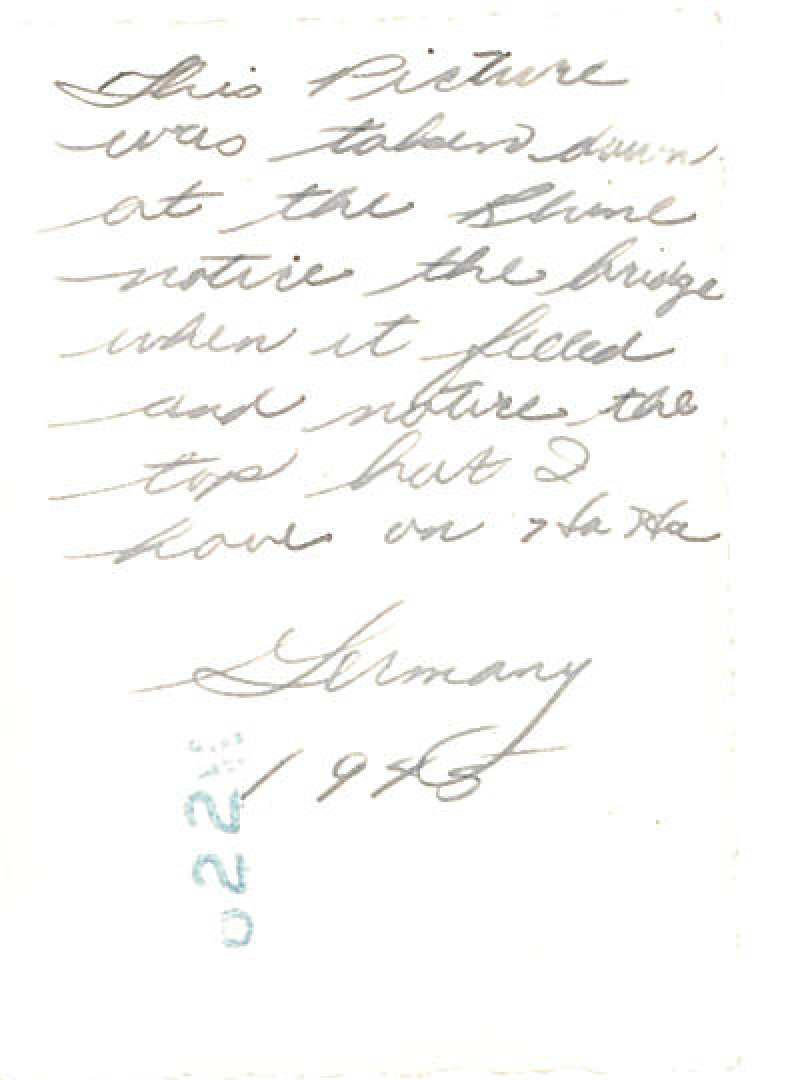 This Picture
was taken down
at the Rhine
notice the bridge
when it felled
and notice the
top hat I
have on Ha Ha
Germany
1945
022